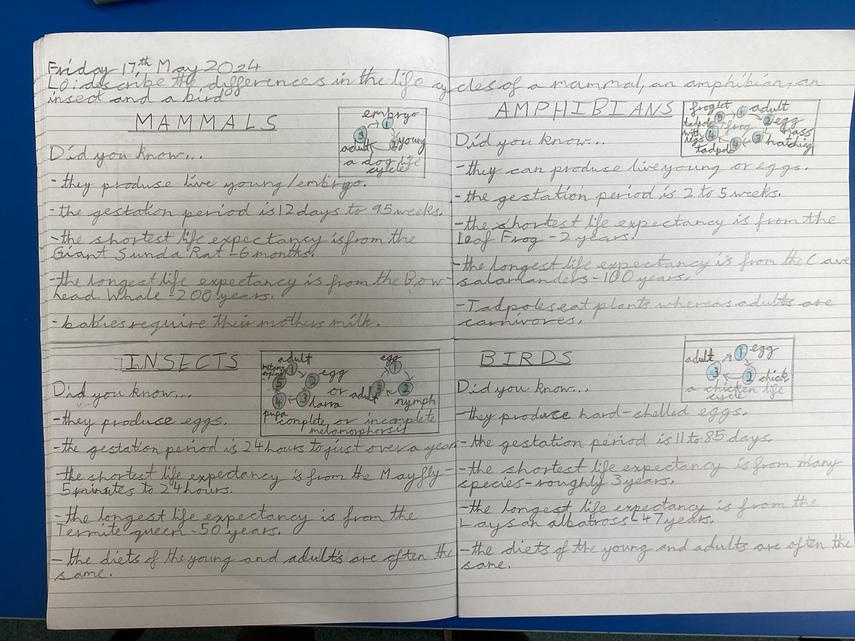 Friday 17th May 2024
LO: describe the differences in the life cycles of a mammal, an amphibian, an
insect and a bird
MAMMALS
embryo
1
young
2
adult
3
a dog life
cycle
Did you know...
- they produce live young/embryo.
- the gestation period is 12 days to 95 weeks.
- the shortest life expectancy is from the
Giant Sunda Rat - 6 months.
- the longest life expectancy is from the Bow-
head Whale - 200 years.
- babies require their mothers milk.
AMPHIBIANS
froglet
adult
egg
mass
hatching
tadpole
tadpole
with
legs
frog
1
2
3
4
5
Did you know...
- they can produce live young or eggs.
- the gestation period is 2 to 5 weeks.
- the shortest life expectancy is from the
Leaf Frog - 2 years.
- the longest life expectancy is from the Cave
salamanders - 100 years.
- Tadpoles eat plants whereas adults are
carnivores.
INSECTS
adult
1
egg
2
larva
3
pupa
4
5
or
egg
1
nymph
2
adult
3
complete or incomplete
metamorphosis
Did you know...
- they produce eggs.
- the gestation period is 24 hours to just over a year
- the shortest life expectancy is from the Mayfly -
5 minutes to 24 hours.
- the longest life expectancy is from the
Termite queen - 50 years.
- the diets of the young and adults are often the
same.
BIRDS
adult
1
egg
2
chick
3
a chicken life
cycle
Did you know...
- they produce hard-shelled eggs.
- the gestation period is 11 to 85 days.
- the shortest life expectancy is from many
species - roughly 3 years.
- the longest life expectancy is from the
Laysan albatross - 47 years.
- the diets of the young and adults are often the
same.